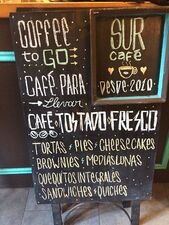 COFFEE
to GO:
CAFÉ PARA
Llevar
SUR
café
DESDE·2010
CAFÉ TOSTADO FRESCO
TORTAS · PIES · CHEESECAKES
BROWNIES · MEDIASLUNAS
QUEQUITOS INTEGRALES
SANDWICHES · QUICHES